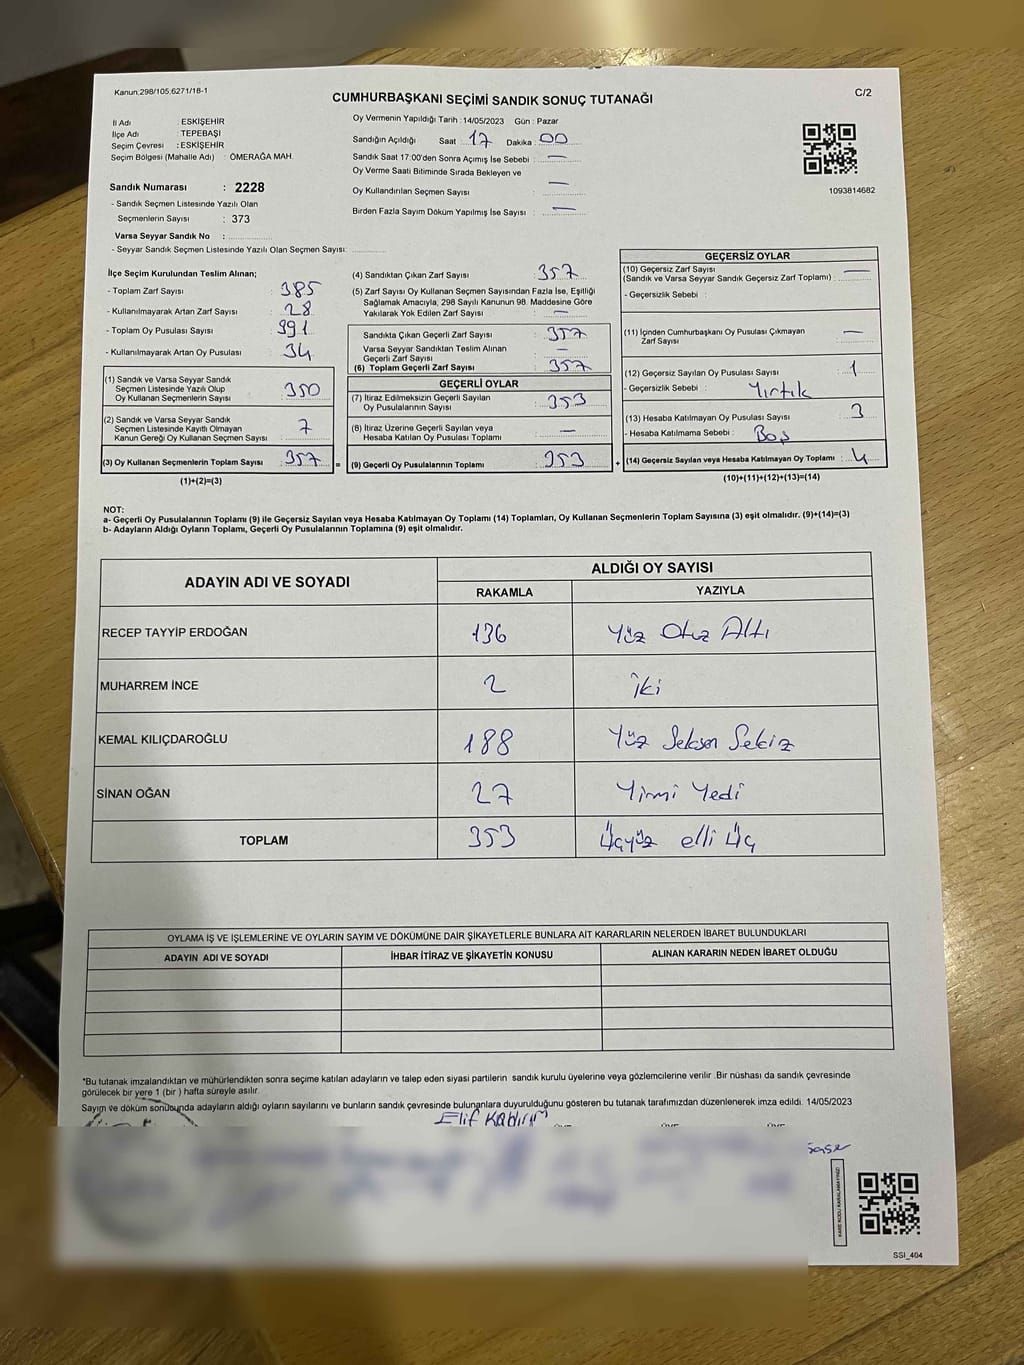 Kanun:298/105,6271/18-1
CUMHURBAŞKANI SEÇİMİ SANDIK SONUÇ TUTANAĞI
C/2
İl Adı : ESKİŞEHİR
İlçe Adı : TEPEBAŞI
Seçim Çevresi : ESKİŞEHİR
Seçim Bölgesi (Mahalle Adı) : ÖMERAĞA MAH.
Sandık Numarası : 2228
- Sandık Seçmen Listesinde Yazılı Olan
Seçmenlerin Sayısı : 373
Varsa Seyyar Sandık No :
- Seyyar Sandık Seçmen Listesinde Yazılı Olan Seçmen Sayısı:
Oy Vermenin Yapıldığı Tarih :14/05/2023 Gün : Pazar
Sandığın Açıldığı Saat 17 Dakika : 00
Sandık Saat 17:00'den Sonra Açımış İse Sebebi : —
Oy Verme Saati Bitiminde Sırada Bekleyen ve
Oy Kullandırılan Seçmen Sayısı : —
Birden Fazla Sayım Döküm Yapılmış İse Sayısı : —
1093814682
İlçe Seçim Kurulundan Teslim Alınan;
- Toplam Zarf Sayısı : 385
- Kullanılmayarak Artan Zarf Sayısı : 28
- Toplam Oy Pusulası Sayısı : 391
- Kullanılmayarak Artan Oy Pusulası : 34
(1) Sandık ve Varsa Seyyar Sandık
Seçmen Listesinde Yazılı Olup
Oy Kullanan Seçmenlerin Sayısı : 350
(2) Sandık ve Varsa Seyyar Sandık
Seçmen Listesinde Kayıtlı Olmayan
Kanun Gereği Oy Kullanan Seçmen Sayısı : 7
(3) Oy Kullanan Seçmenlerin Toplam Sayısı : 357
(1)+(2)=(3)
=
(4) Sandıktan Çıkan Zarf Sayısı : 357
(5) Zarf Sayısı Oy Kullanan Seçmen Sayısından Fazla İse, Eşitliği
Sağlamak Amacıyla, 298 Sayılı Kanunun 98. Maddesine Göre
Yakılarak Yok Edilen Zarf Sayısı : —
Sandıkta Çıkan Geçerli Zarf Sayısı : 357
Varsa Seyyar Sandıktan Teslim Alınan
Geçerli Zarf Sayısı : —
(6) Toplam Geçerli Zarf Sayısı : 357
GEÇERLİ OYLAR
(7) İtiraz Edilmeksizin Geçerli Sayılan
Oy Pusulalarının Sayısı : 353
(8) İtiraz Üzerine Geçerli Sayılan veya
Hesaba Katılan Oy Pusulası Toplamı : —
(9) Geçerli Oy Pusulalarının Toplamı : 353
+
GEÇERSİZ OYLAR
(10) Geçersiz Zarf Sayısı : —
(Sandık ve Varsa Seyyar Sandık Geçersiz Zarf Toplamı) :
- Geçersizlik Sebebi :
(11) İçinden Cumhurbaşkanı Oy Pusulası Çıkmayan
Zarf Sayısı : —
(12) Geçersiz Sayılan Oy Pusulası Sayısı : 1
- Geçersizlik Sebebi : Yırtık
(13) Hesaba Katılmayan Oy Pusulası Sayısı : 3
- Hesaba Katılmama Sebebi : Boş
(14) Geçersiz Sayılan veya Hesaba Katılmayan Oy Toplamı : 4
(10)+(11)+(12)+(13)=(14)
NOT:
a- Geçerli Oy Pusulalarının Toplamı (9) ile Geçersiz Sayılan veya Hesaba Katılmayan Oy Toplamı (14) Toplamları, Oy Kullanan Seçmenlerin Toplam Sayısına (3) eşit olmalıdır. (9)+(14)=(3)
b- Adayların Aldığı Oyların Toplamı, Geçerli Oy Pusulalarının Toplamına (9) eşit olmalıdır.
ADAYIN ADI VE SOYADI
ALDIĞI OY SAYISI
RAKAMLA YAZIYLA
RECEP TAYYİP ERDOĞAN 136 Yüz Otuz Altı
MUHARREM İNCE 2 İki
KEMAL KILIÇDAROĞLU 188 Yüz Seksen Sekiz
SİNAN OĞAN 27 Yirmi Yedi
TOPLAM 353 Üçyüz elli Üç
OYLAMA İŞ VE İŞLEMLERİNE VE OYLARIN SAYIM VE DÖKÜMÜNE DAİR ŞİKAYETLERLE BUNLARA AİT KARARLARIN NELERDEN İBARET BULUNDUKLARI
ADAYIN ADI VE SOYADI İHBAR İTİRAZ VE ŞİKAYETİN KONUSU ALINAN KARARIN NEDEN İBARET OLDUĞU
*Bu tutanak imzalandıktan ve mühürlendikten sonra seçime katılan adayların ve talep eden siyasi partilerin sandık kurulu üyelerine veya gözlemcilerine verilir. Bir nüshası da sandık çevresinde
görülecek bir yere 1 (bir) hafta süreyle asılır.
Sayım ve döküm sonucunda adayların aldığı oyların sayılarını ve bunların sandık çevresinde bulunanlara duyurulduğunu gösteren bu tutanak tarafımızdan düzenlenerek imza edildi. 14/05/2023
Elif
SSI_404